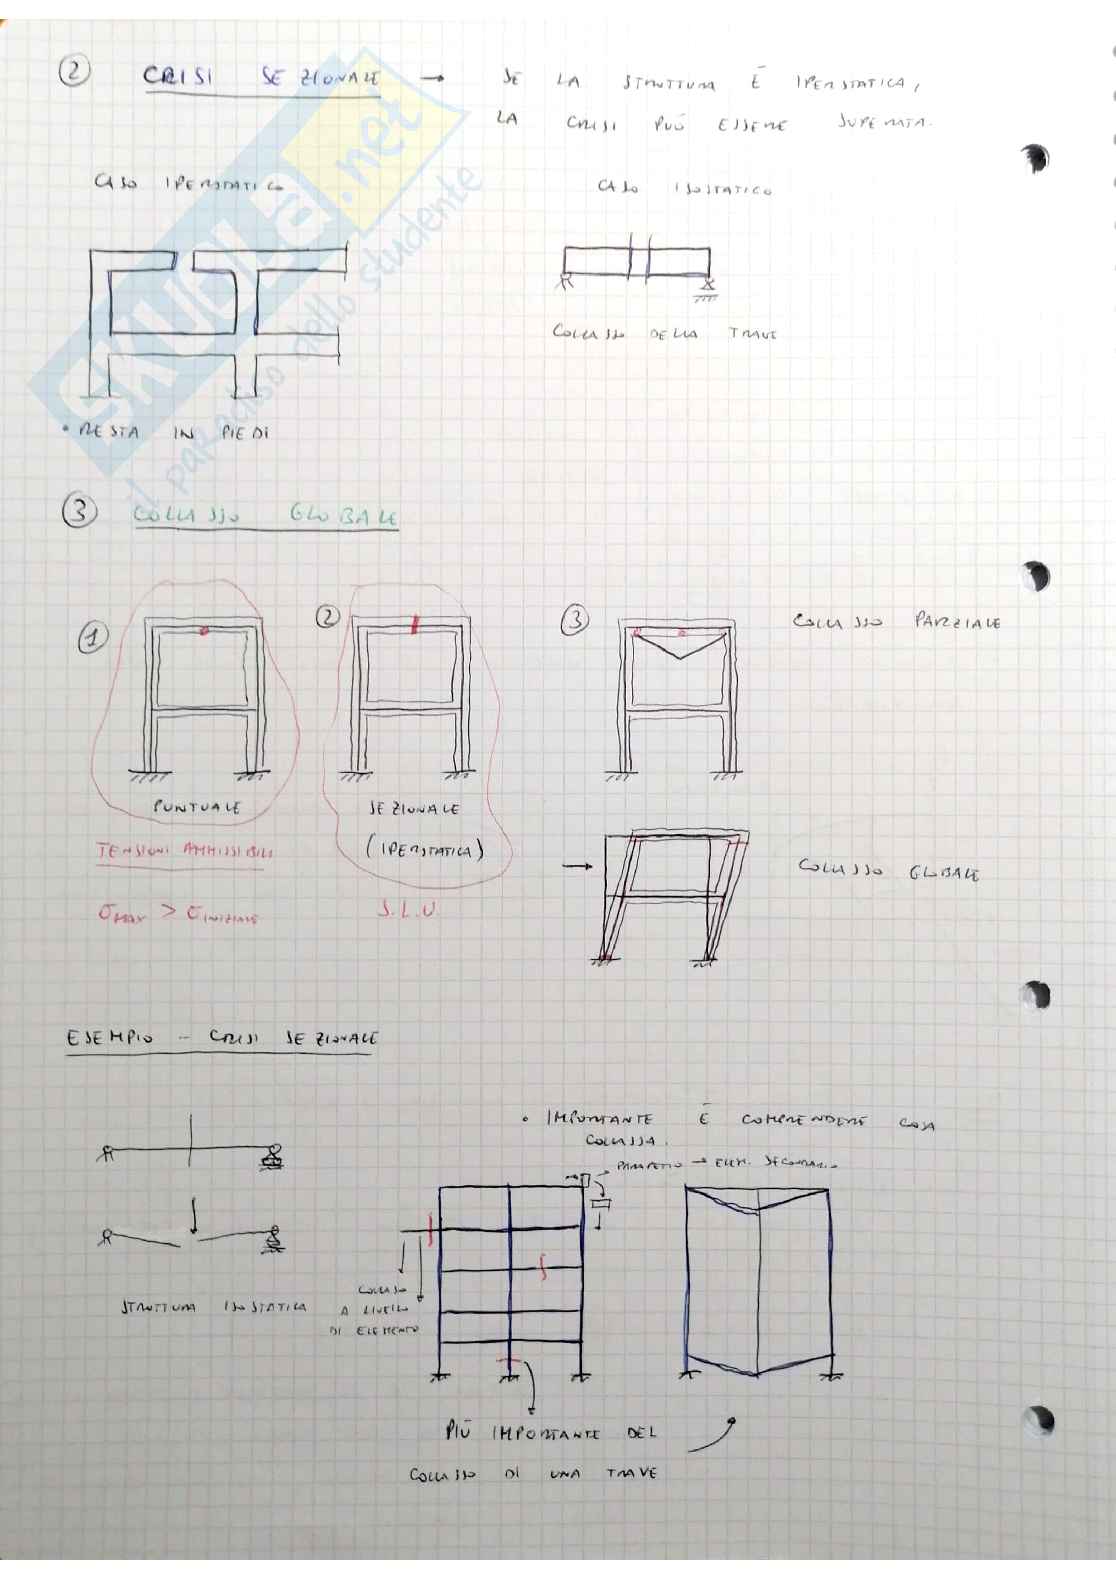 ② CRISI SEZIONALE → SE LA STRUTTURA È IPERSTATICA,
LA CRISI PUÒ ESSERE SUPERATA.
CASO IPERSTATICO
CASO ISOSTATICO
COLLASSO DELLA TRAVE
• RESTA IN PIEDI
SKUOLA.net
il paradiso dello studente
③ COLLASSO GLOBALE
①
②
③
COLLASSO PARZIALE
PUNTUALE
SEZIONALE
(IPERSTATICA)
TENSIONI AMMISSIBILI
σMAX > σINIZIALE
S.L.U.
→
COLLASSO GLOBALE
ESEMPIO - CRISI SEZIONALE
• IMPORTANTE È COMPRENDERE COSA
COLLASSA.
→ PARAPETTO → ELEM. SECONDARIO
STRUTTURA ISOSTATICA
COLLASSO
A LIVELLO
DI ELEMENTO
PIÙ IMPORTANTE DEL
COLLASSO DI UNA TRAVE